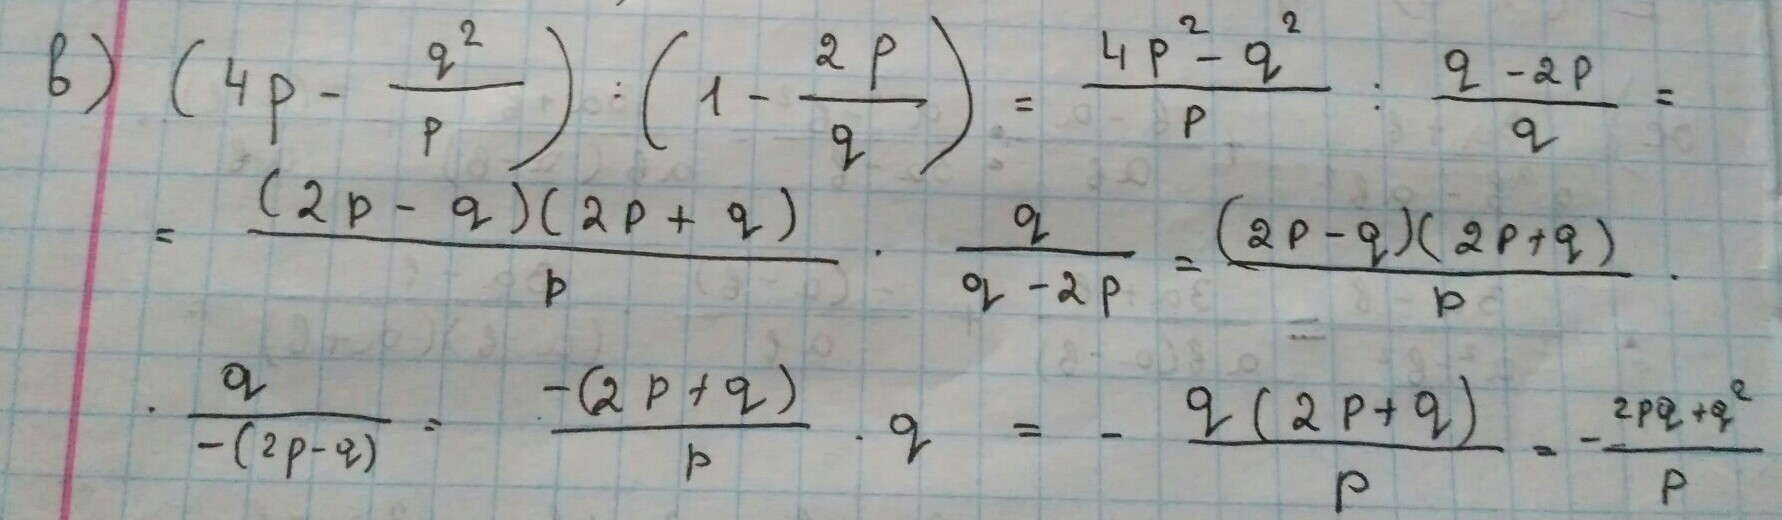 в) (4p - q²/p) : (1 - 2p/q) = (4p² - q²)/p : (q - 2p)/q =
= (2p - q)(2p + q)/p · q/(q - 2p) = (2p - q)(2p + q)/p ·
· q/(-(2p - q)) = -(2p + q)/p · q = - q(2p + q)/p = - (2pq + q²)/p